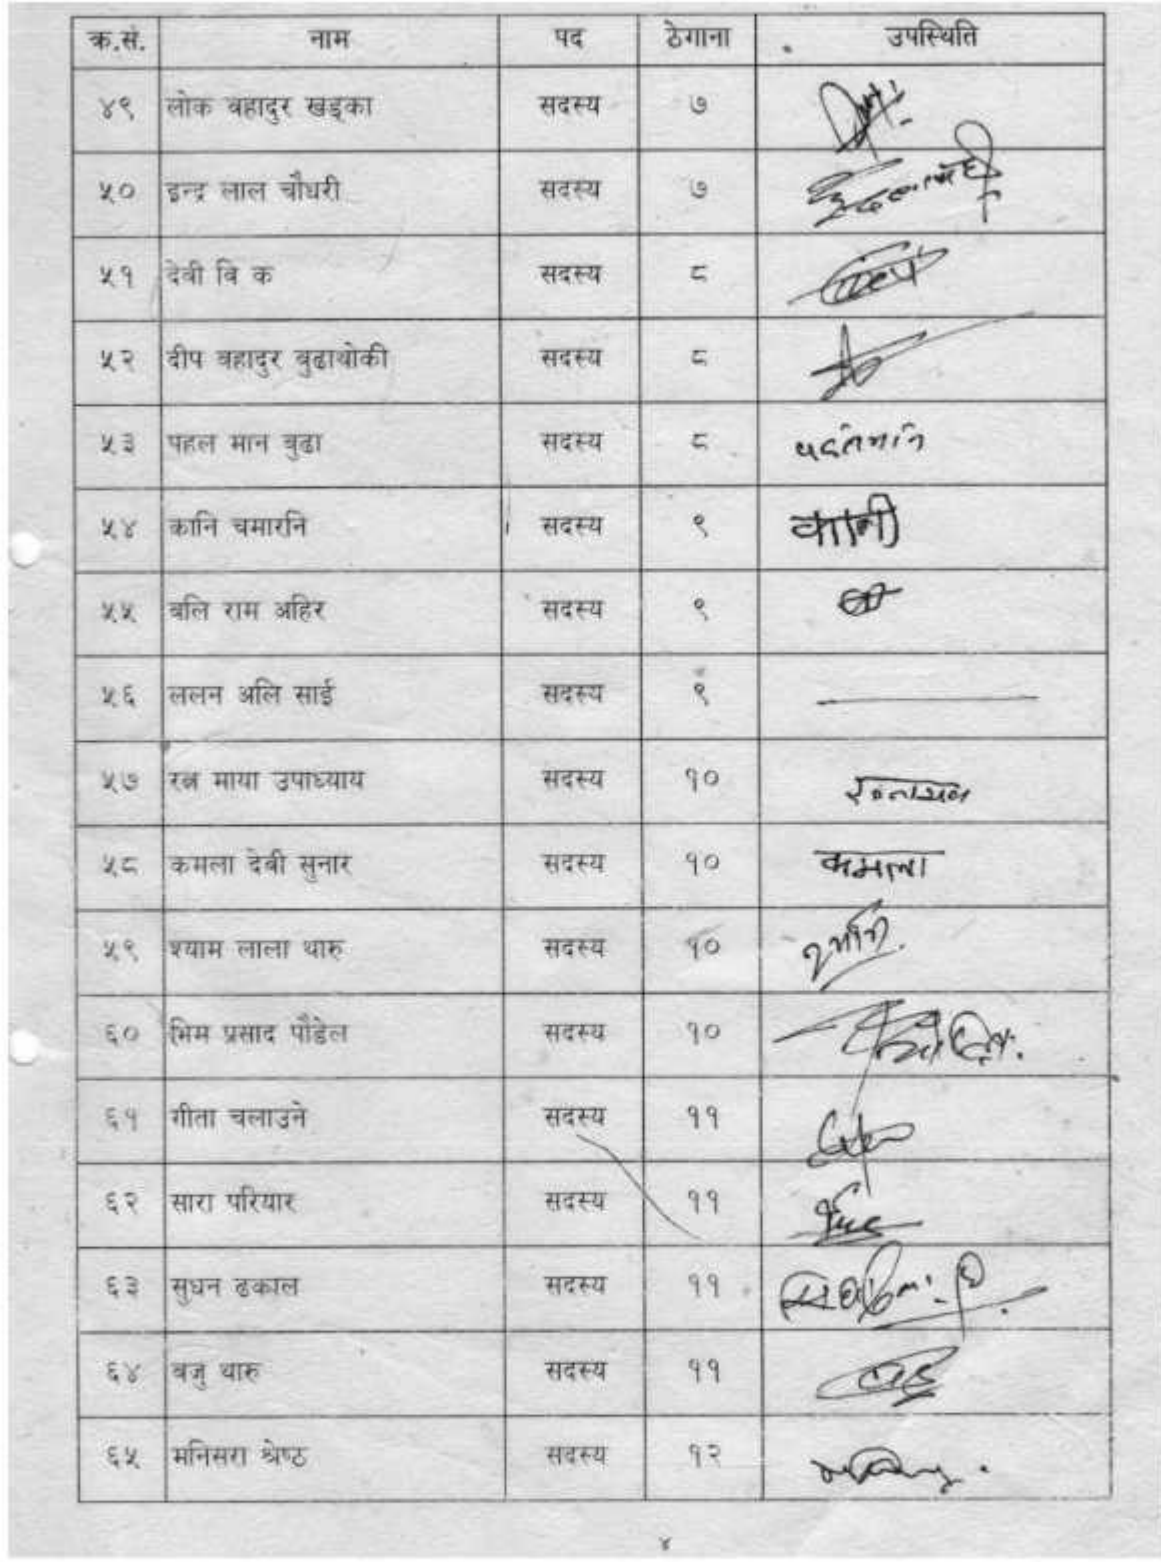 क्र.सं. नाम पद ठेगाना उपस्थिति
४९ लोक वहादुर खड्का सदस्य ७
५० इन्द्र लाल चौधरी सदस्य ७
५१ देवी वि क सदस्य ८
५२ दीप वहादुर वुढाथोकी सदस्य ८
५३ पहल मान वुढा सदस्य ८
५४ कानि चमारनि सदस्य ९ कानी
५५ वलि राम अहिर सदस्य ९
५६ ललन अलि साई सदस्य ९
५७ रत्न माया उपाध्याय सदस्य १०
५८ कमला देवी सुनार सदस्य १० कमला
५९ श्याम लाला थारु सदस्य १०
६० भिम प्रसाद पौडेल सदस्य १०
६१ गीता चलाउने सदस्य ११
६२ सारा परियार सदस्य ११
६३ सुधन ढकाल सदस्य ११
६४ वजु थारु सदस्य ११
६५ मनिसरा श्रेष्ठ सदस्य १२
४